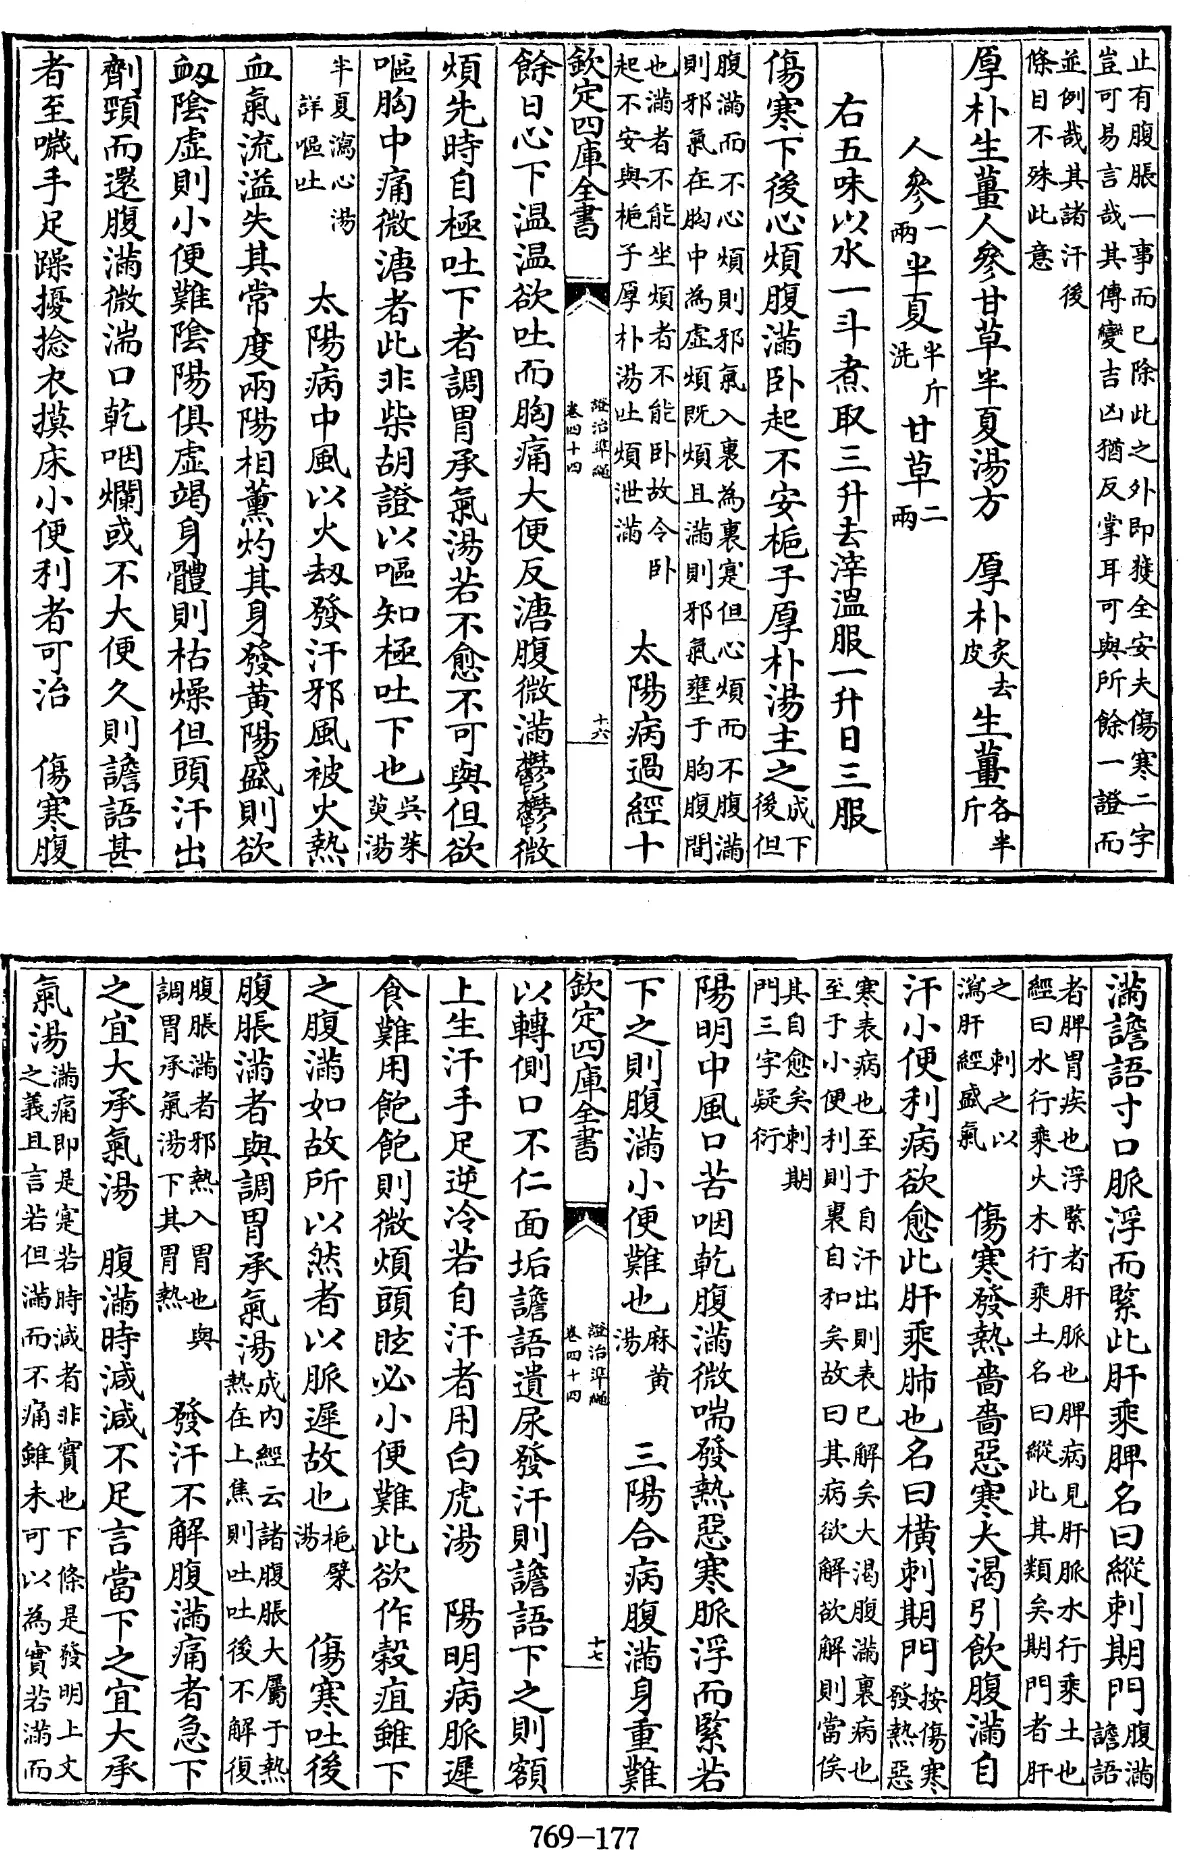 止有腹脹一事而已除此之外即獲全安夫傷寒二字
豈可易言哉其傳變吉凶猶反掌耳可與所餘一證而
並例哉其諸汗後
條目不殊此意
厚朴生薑人參甘草半夏湯方　厚朴炙去皮生薑各半斤
人參一兩半夏半斤洗甘草二兩
右五味以水一斗煮取三升去滓溫服一升日三服
傷寒下後心煩腹滿卧起不安梔子厚朴湯主之成下後但
腹滿而不心煩則邪氣入裏為裏寔但心煩而不腹滿
則邪氣在胸中為虛煩既煩且滿則邪氣壅于胸腹間
也滿者不能坐煩者不能卧故令卧
起不安與梔子厚朴湯吐煩泄滿　太陽病過經十
欽定四庫全書　證治準繩卷四十四　十六
餘日心下溫溫欲吐而胸痛大便反溏腹微滿鬱鬱微
煩先時自極吐下者調胃承氣湯若不愈不可與但欲
嘔胸中痛微溏者此非柴胡證以嘔知極吐下也吳茱萸湯
半夏瀉心湯
詳嘔吐　太陽病中風以火劫發汗邪風被火熱
血氣流溢失其常度兩陽相薰灼其身發黃陽盛則欲
衄陰虛則小便難陰陽俱虛竭身體則枯燥但頭汗出
劑頸而還腹滿微湍口乾咽爛或不大便久則譫語甚
者至噦手足躁擾捻衣摸床小便利者可治　傷寒腹
滿譫語寸口脈浮而緊此肝乘脾名曰縱刺期門腹滿譫語
者脾胃疾也浮緊者肝脈也脾病見肝脈水行乘土也
經曰水行乘火木行乘土名曰縱此其類矣期門者肝
之　刺之以
瀉肝經盛氣　傷寒發熱嗇嗇惡寒大渴引飲腹滿自
汗小便利病欲愈此肝乘肺也名曰橫刺期門按傷寒發熱惡
寒表病也至于自汗出則表已解矣大渴腹滿裏病也
至于小便利則裏自和矣故曰其病欲解欲解則當俟
其自愈矣刺期
門三字疑衍
陽明中風口苦咽乾腹滿微喘發熱惡寒脈浮而緊若
下之則腹滿小便難也麻黃湯　三陽合病腹滿身重難
欽定四庫全書　證治準繩卷四十四　十七
以轉側口不仁面垢譫語遺尿發汗則譫語下之則額
上生汗手足逆冷若自汗者用白虎湯　陽明病脈遲
食難用飽飽則微煩頭眩必小便難此欲作穀疸雖下
之腹滿如故所以然者以脈遲故也梔檗湯　傷寒吐後
腹脹滿者與調胃承氣湯成內經云諸腹脹大屬于熱熱在上焦則吐吐後不解復
腹脹滿者邪熱入胃也與
調胃承氣湯下其胃熱　發汗不解腹滿痛者急下
之宜大承氣湯　腹滿時減減不足言當下之宜大承
氣湯滿痛即是寔若時減者非實也下條是發明上文之義且言若但滿而不痛雖未可以為實若滿而
769-177